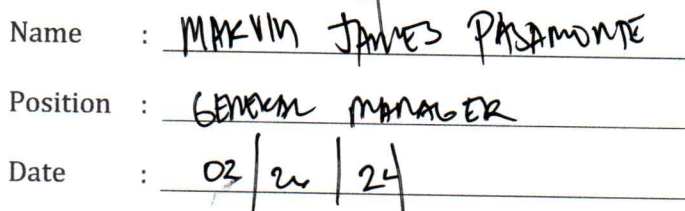 Name : MARVIN JAMES PASAMONTE
Position : GENERAL MANAGER
Date : 02 / / 24